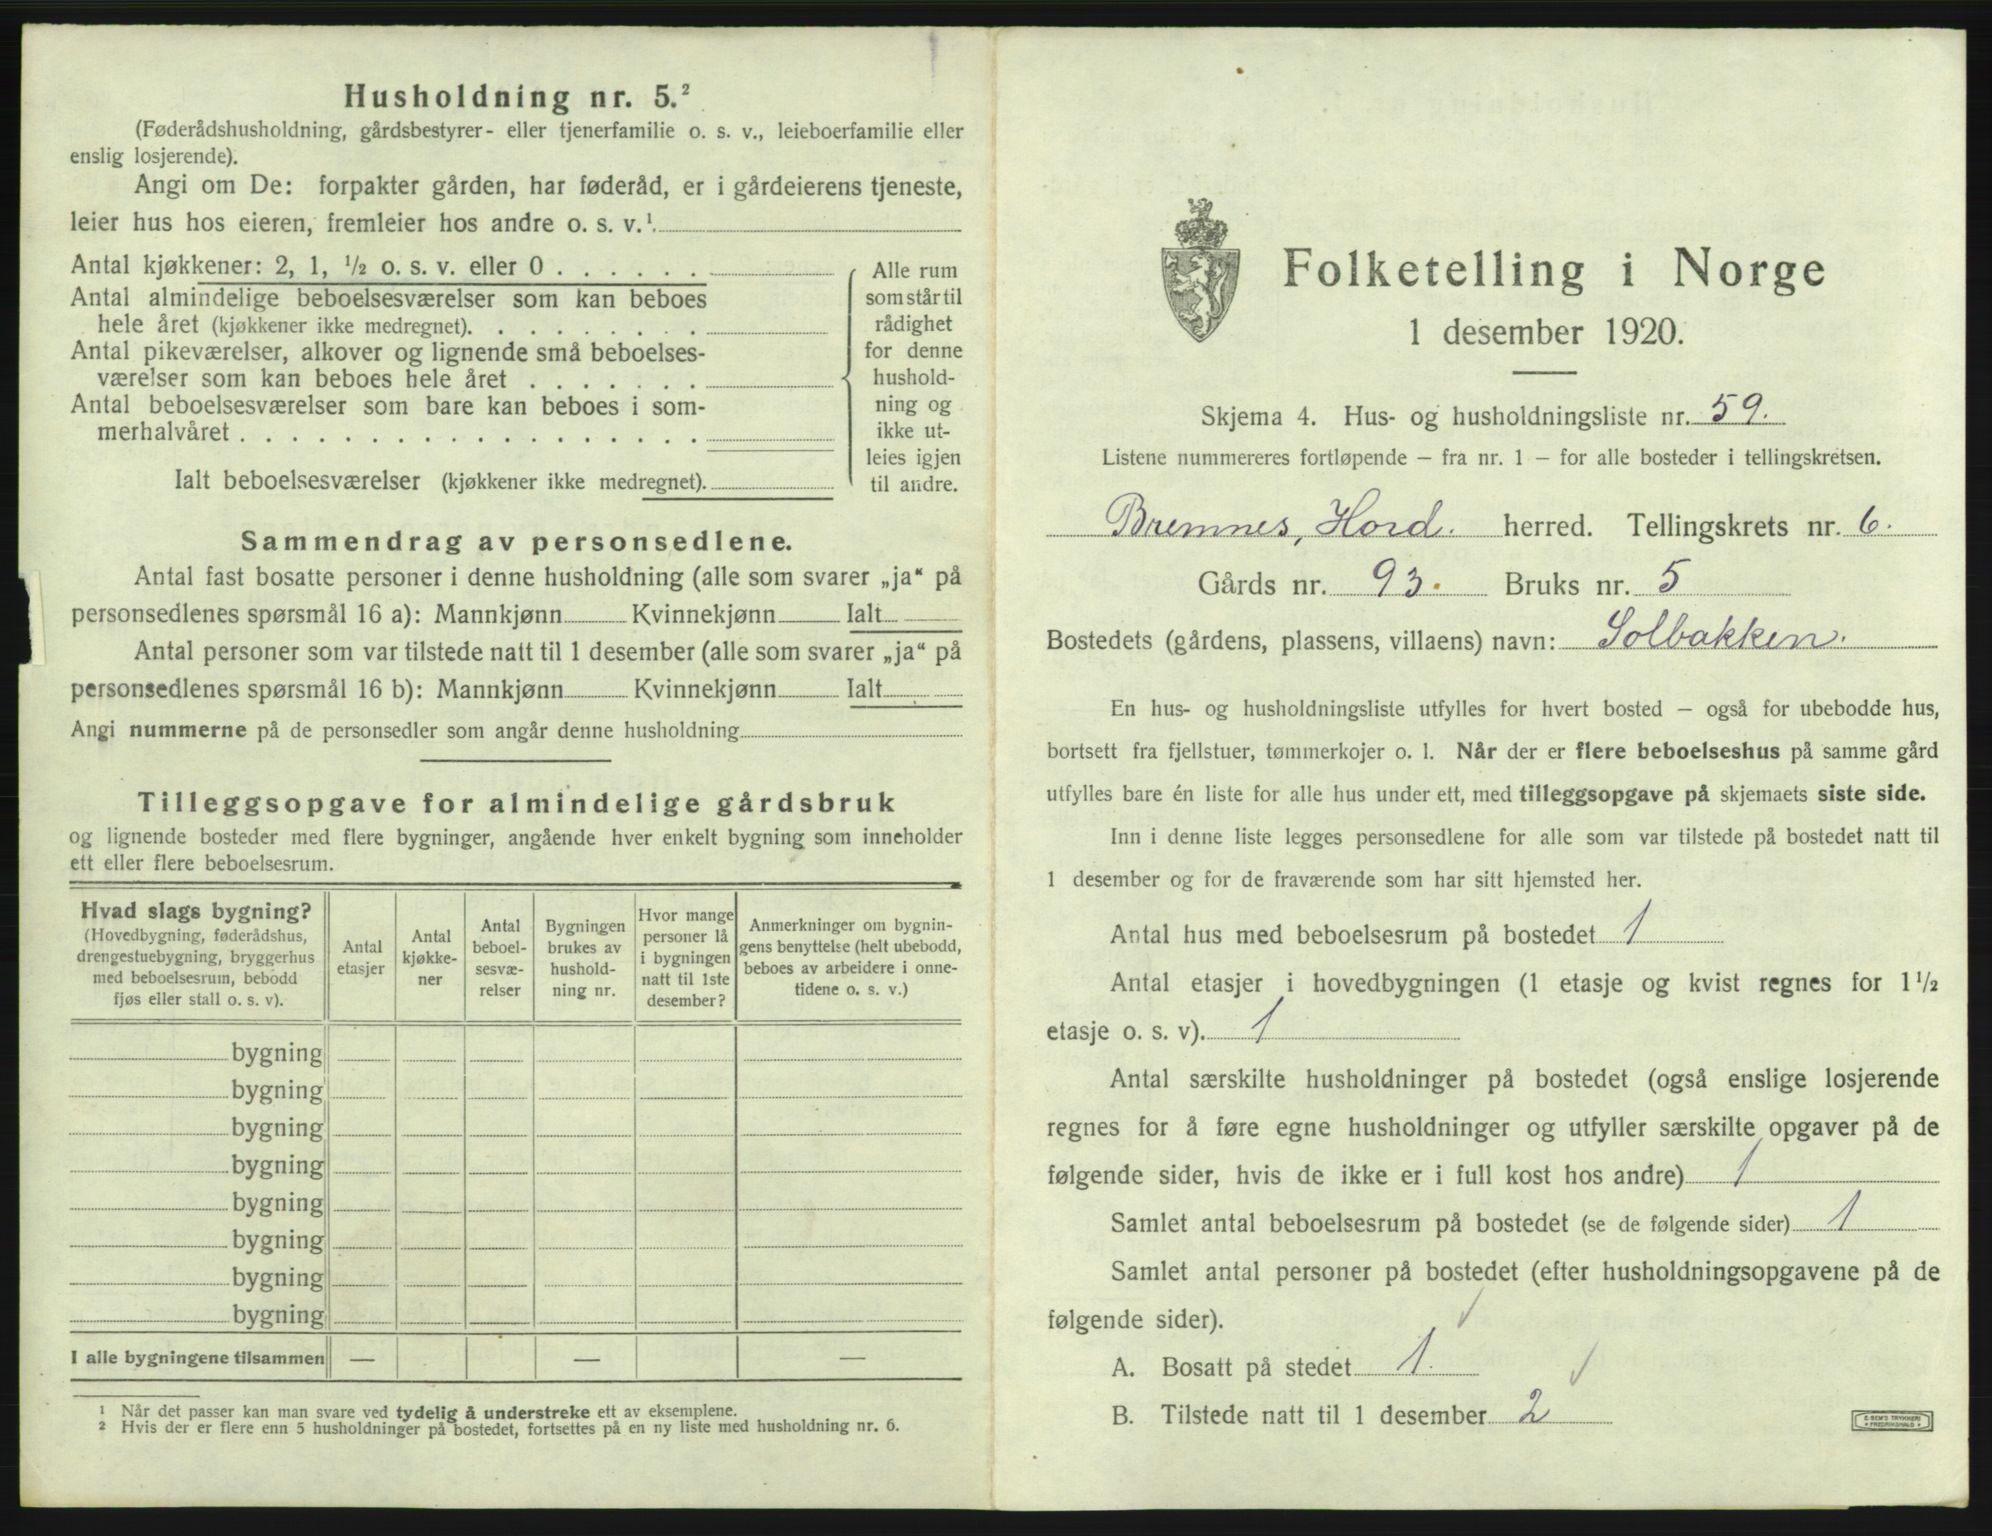 Husholdning nr. 5.²
(Føderådshusholdning, gårdsbestyrer- eller tjenerfamilie o. s. v., leieboerfamilie eller
enslig losjerende).
Angi om De: forpakter gården, har føderåd, er i gårdeierens tjeneste,
leier hus hos eieren, fremleier hos andre o. s. v.¹
Antal kjøkkener: 2, 1, ½ o. s. v. eller 0 . . . . . .
Antal almindelige beboelsesværelser som kan beboes
hele året (kjøkkener ikke medregnet). . . . . . . . .
Antal pikeværelser, alkover og lignende små beboelses-
værelser som kan beboes hele året . . . . . . .
Antal beboelsesværelser som bare kan beboes i som-
merhalvåret . . . . . . . . . . . . . . . . . .
Ialt beboelsesværelser (kjøkkener ikke medregnet).
Alle rum
som står til
rådighet
for denne
hushold-
ning og
ikke ut-
leies igjen
til andre.
Sammendrag av personsedlene.
Antal fast bosatte personer i denne husholdning (alle som svarer „ja“ på
personsedlenes spørsmål 16 a): Mannkjønn Kvinnekjønn Ialt
Antal personer som var tilstede natt til 1 desember (alle som svarer „ja“ på
personsedlenes spørsmål 16 b): Mannkjønn Kvinnekjønn Ialt
Angi nummerne på de personsedler som angår denne husholdning
Tilleggsopgave for almindelige gårdsbruk
og lignende bosteder med flere bygninger, angående hver enkelt bygning som inneholder
ett eller flere beboelsesrum.
Hvad slags bygning?
(Hovedbygning, føderådshus,
drengestuebygning, bryggerhus
med beboelsesrum, bebodd
fjøs eller stall o. s. v).
Antal
etasjer
Antal
kjøkke-
ner
Antal
beboel-
sesvæ-
relser
Bygningen
brukes av
hushold-
ning nr.
Hvor mange
personer lå
i bygningen
natt til 1ste
desember?
Anmerkninger om bygnin-
gens benyttelse (helt ubebodd,
beboes av arbeidere i onne-
tidene o. s. v.)
bygning
bygning
bygning
bygning
bygning
bygning
bygning
bygning
I alle bygningene tilsammen — — —
¹ Når det passer kan man svare ved tydelig å understreke ett av eksemplene.
² Hvis der er flere enn 5 husholdninger på bostedet, fortsettes på en ny liste med husholdning nr. 6.
Folketelling i Norge
1 desember 1920.
Skjema 4. Hus- og husholdningsliste nr. 59.
Listene nummereres fortløpende – fra nr. 1 – for alle bosteder i tellingskretsen.
Bremnes, Hord. herred. Tellingskrets nr. 6.
Gårds nr. 93. Bruks nr. 5
Bostedets (gårdens, plassens, villaens) navn: Solbakken.
En hus- og husholdningsliste utfylles for hvert bosted – også for ubebodde hus,
bortsett fra fjellstuer, tømmerkojer o. l. Når der er flere beboelseshus på samme gård
utfylles bare én liste for alle hus under ett, med tilleggsopgave på skjemaets siste side.
Inn i denne liste legges personsedlene for alle som var tilstede på bostedet natt til
1 desember og for de fraværende som har sitt hjemsted her.
Antal hus med beboelsesrum på bostedet 1
Antal etasjer i hovedbygningen (1 etasje og kvist regnes for 1½
etasje o. s. v). 1
Antal særskilte husholdninger på bostedet (også enslige losjerende
regnes for å føre egne husholdninger og utfyller særskilte opgaver på de
følgende sider, hvis de ikke er i full kost hos andre) 1
Samlet antal beboelsesrum på bostedet (se de følgende sider) 1
Samlet antal personer på bostedet (efter husholdningsopgavene på de
følgende sider).
A. Bosatt på stedet 1.
B. Tilstede natt til 1 desember 2
E. SEM'S TRYKKERI
FREDRIKSHALD